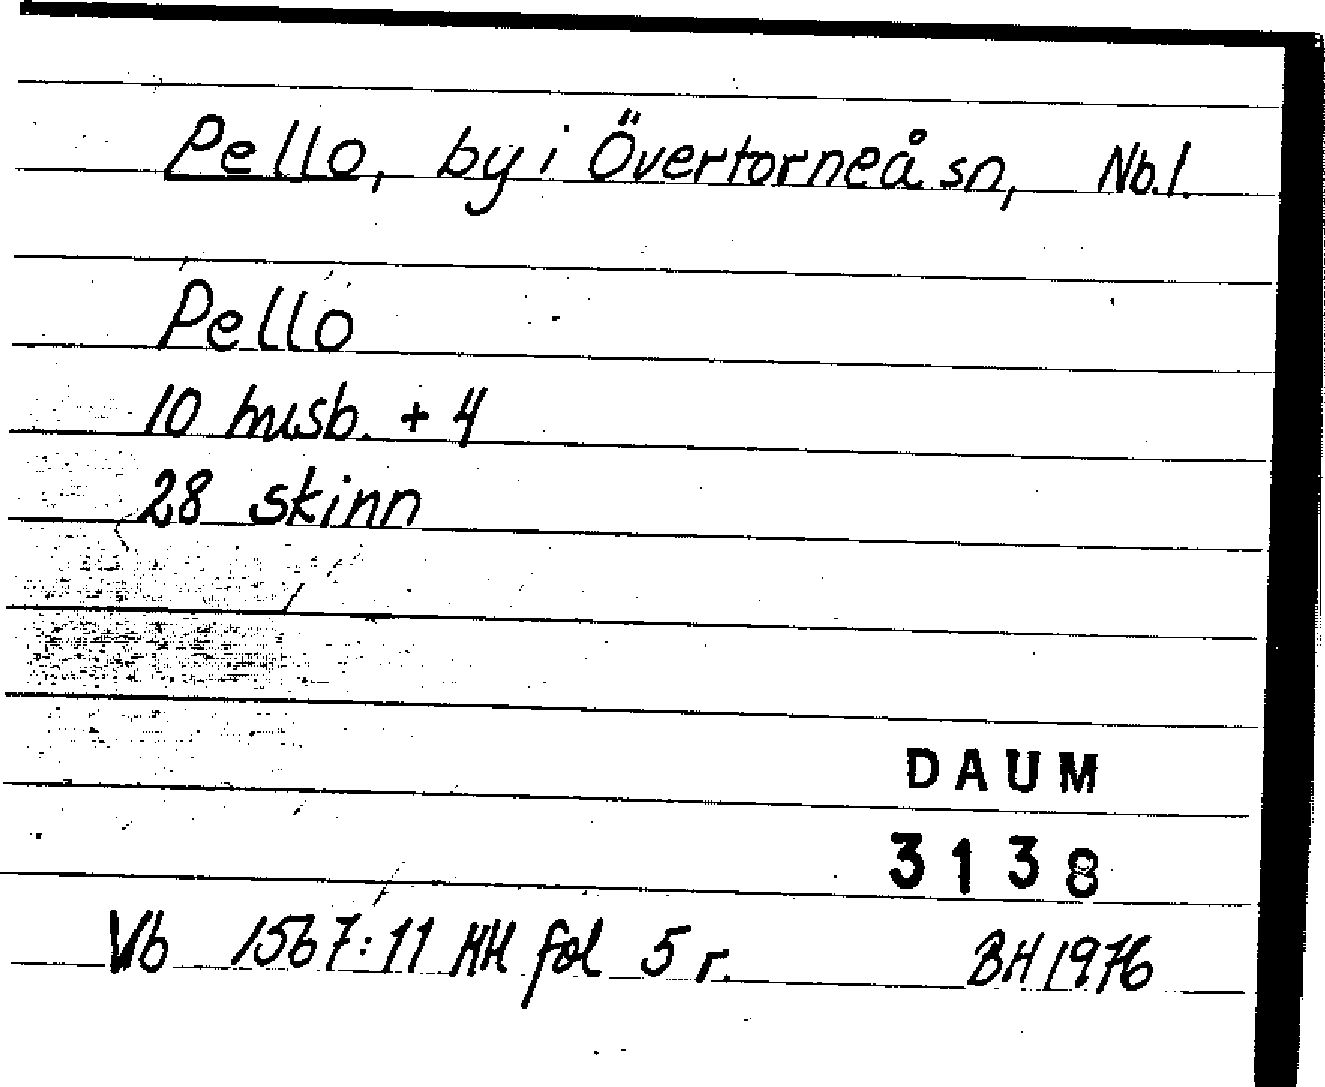 Pello, by i Övertorneå sn, Nb.l.
Pello
10 husb. + 4
28 skinn
DAUM
3138
Vb 1567:11 HH fol 5 r. BH 1976